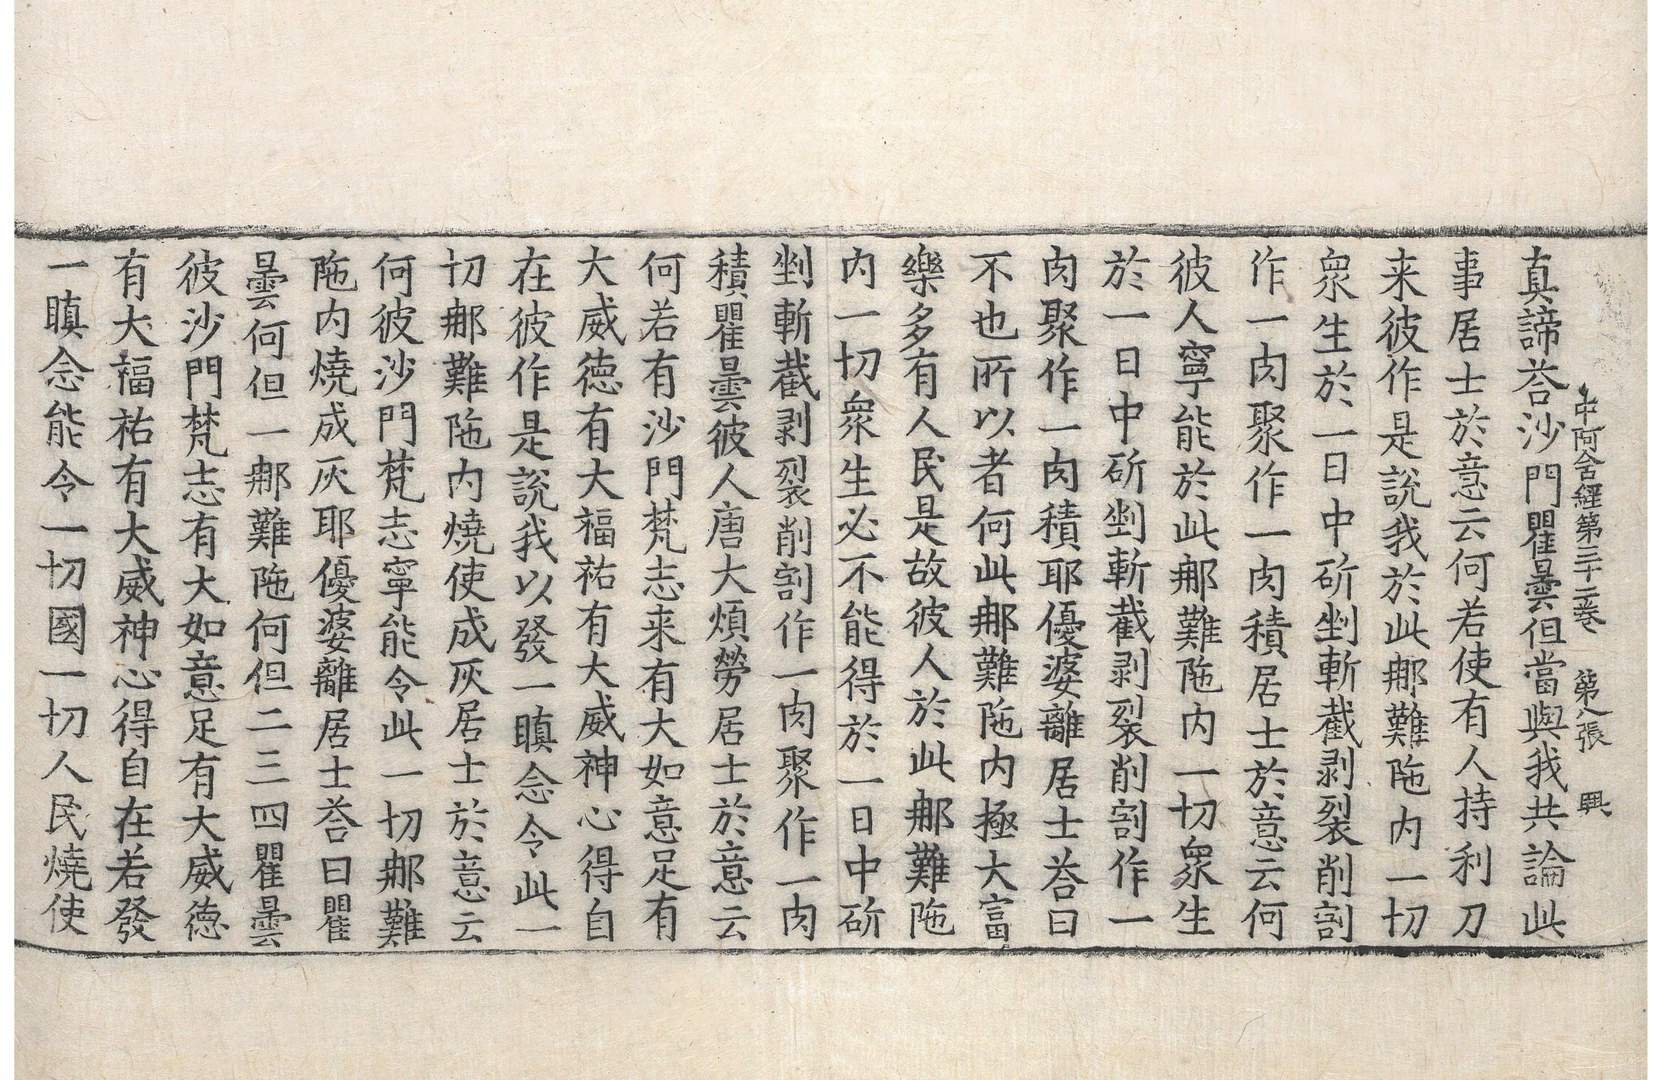 中阿含經第三十二卷　第八張　興
真諦荅沙門瞿曇但當與我共論此
事居士於意云何若使有人持利刀
来彼作是說我於此那難陁内一切
衆生於一日中斫剉斬截剥裂削割
作一肉聚作一肉積居士於意云何
彼人寧能於此那難陁内一切衆生
於一日中斫剉斬截剥裂削割作一
肉聚作一肉積耶優婆離居士荅曰
不也所以者何此那難陁内極大富
樂多有人民是故彼人於此那難陁
内一切衆生必不能得於一日中斫
剉斬截剥裂削割作一肉聚作一肉
積瞿曇彼人唐大煩勞居士於意云
何若有沙門梵志来有大如意足有
大威德有大福祐有大威神心得自
在彼作是說我以發一瞋念令此一
切那難陁内燒使成灰居士於意云
何彼沙門梵志寧能令此一切那難
陁内燒成灰耶優婆離居士荅曰瞿
曇何但一那難陁何但二三四瞿曇
彼沙門梵志有大如意足有大威德
有大福祐有大威神心得自在若發
一瞋念能令一切國一切人民燒使